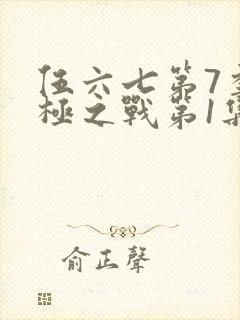 伍六七第7季
極之戰第1集
俞正聲